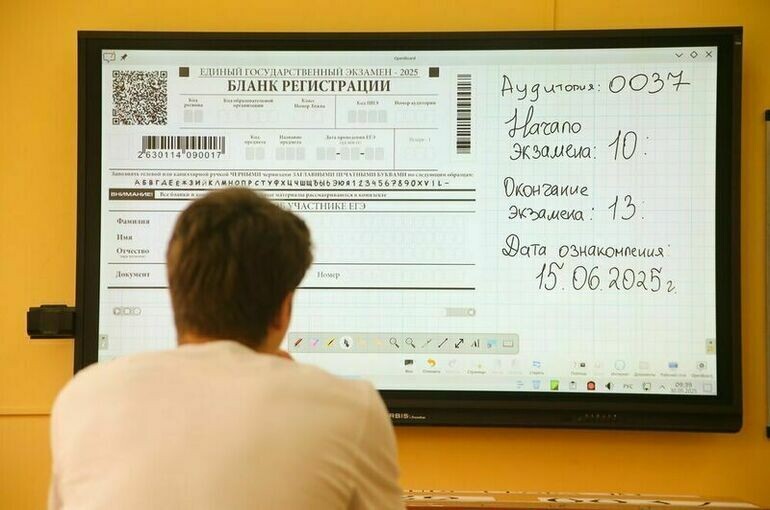 OpenBoard
ЕДИНЫЙ ГОСУДАРСТВЕННЫЙ ЭКЗАМЕН - 2025
БЛАНК РЕГИСТРАЦИИ
Код региона
Код образовательной организации
Класс
Номер Буква
Код ППЭ
Номер аудитории
2630114 090017
Код предмета
Название предмета
Дата проведения ЕГЭ
Резерв - 1
Заполнять гелевой или капиллярной ручкой ЧЕРНЫМИ чернилами ЗАГЛАВНЫМИ ПЕЧАТНЫМИ БУКВАМИ по следующим образцам:
АБВГДЕЁЖЗИЙКЛМНОПРСТУФХЦЧШЩЪЫЬЭЮЯ1234567890XVIL-
ВНИМАНИЕ! Все бланки и
материалы рассматриваются в комплекте
ОБ УЧАСТНИКЕ ЕГЭ
Фамилия
Имя
Отчество
Документ
Номер
Аудитория: 0037
Начало
экзамена: 10:
Окончание
экзамена: 13:
Дата ознакомления:
15.06.2025г.
РУС
09:39
30.05.2025